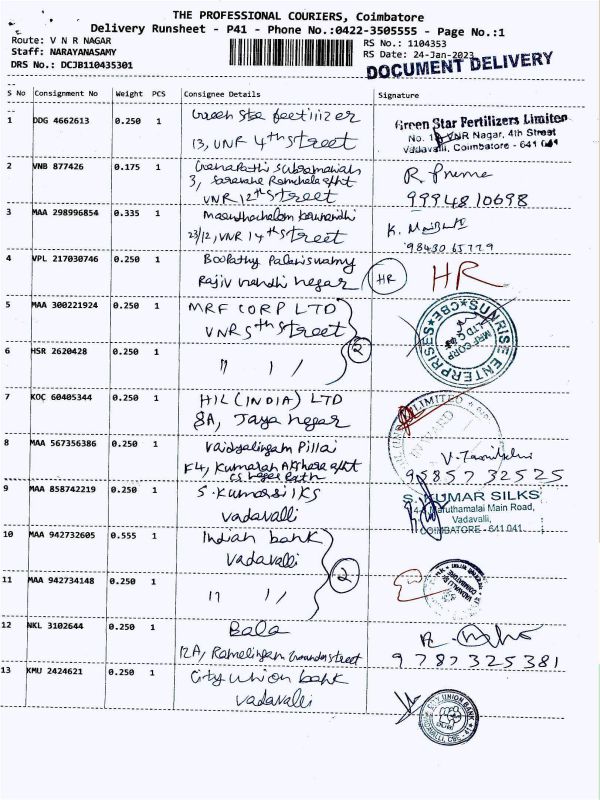 THE PROFESSIONAL COURIERS, Coimbatore
Delivery Runsheet - P41 - Phone No.:0422-3505555 - Page No.:1
Route: V N R NAGAR
Staff: NARAYANASAMY
DRS No.: DCJB110435301
RS No.: 1104353
RS Date: 24-Jan-2023
DOCUMENT DELIVERY
S No Consignment No Weight PCS Consignee Details Signature
1 DDG 4662613 0.250 1 Green Star
13, VNR 4th street
Green Star Fertilizers Limited
VNR Nagar, 4th Street
Vadavalli, Coimbatore - 641 041
2 VNB 877426 0.175 1
3,
VNR 12th street
R Preme
9994810698
3 MAA 298996854 0.335 1
23/12, VNR 14th street
K.
98430 65779
4 VPL 217030746 0.250 1 Boopathy Palaniswamy
Rajiv nandhi nagar
HR
HR
5 MAA 300221924 0.250 1 MRF CORP LTD
VNR 5th street
2
SUNRISE ENTERPRISES CBE
MRF CORP LTD
6 HSR 2620428 0.250 1 " " /
7 KOC 60405344 0.250 1 HIL (INDIA) LTD
8A, Jaya nagar
LIMITED
8 MAA 567356386 0.250 1 Vaidyalingam Pillai
F4, Kumaran
V.
95857 32525
9 MAA 858742219 0.250 1 S. Kumar silks
Vadavalli
S. KUMAR SILKS
Maruthamalai Main Road,
Vadavalli,
COIMBATORE - 641 041
10 MAA 942732605 0.555 1 Indian bank
Vadavalli
2
11 MAA 942734148 0.250 1 " " /
12 NKL 3102644 0.250 1 Bala
12A, Ramalingam street
9787325381
13 KMU 2424621 0.250 1 City union bank
vadavalli
CITY UNION BANK
VADAVALLI, CBE